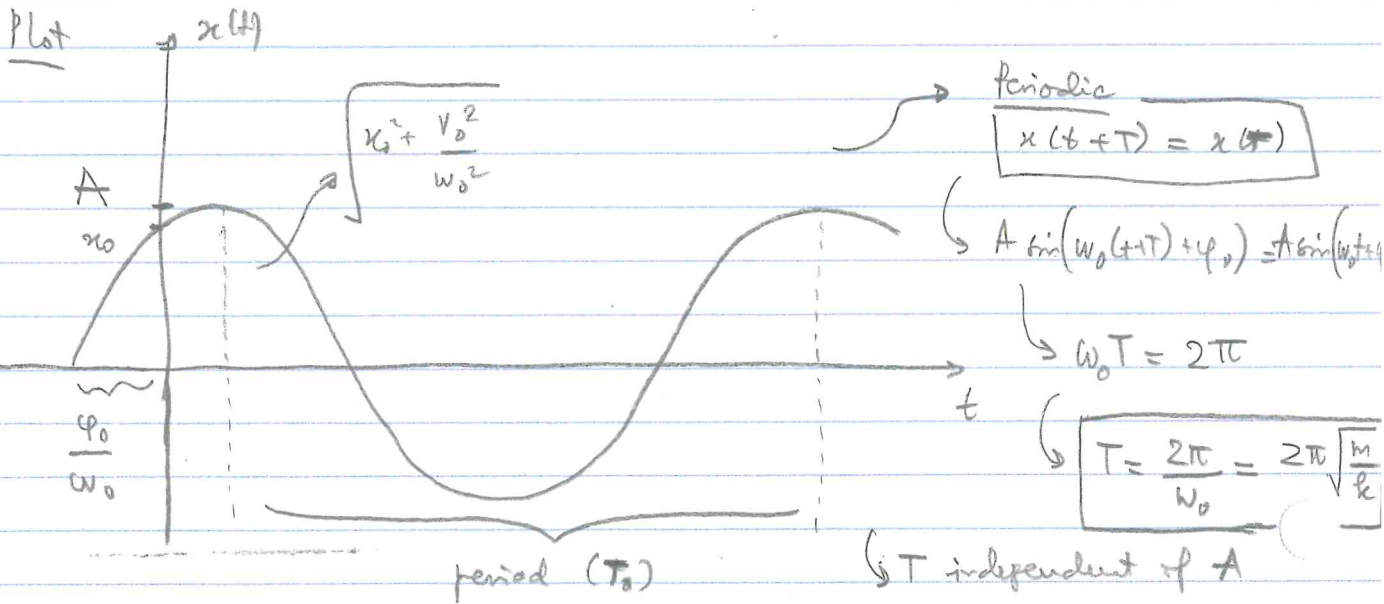 Plot
x(t)
√(x₀² + V₀²/ω₀²)
A
x₀
φ₀/ω₀
t
period (T₀)
Periodic
x(t+T) = x(t)
A sin(ω₀(t+T)+φ₀) = A sin(ω₀t+φ
ω₀T = 2π
T = 2π/ω₀ = 2π√(m/k)
T independent of A